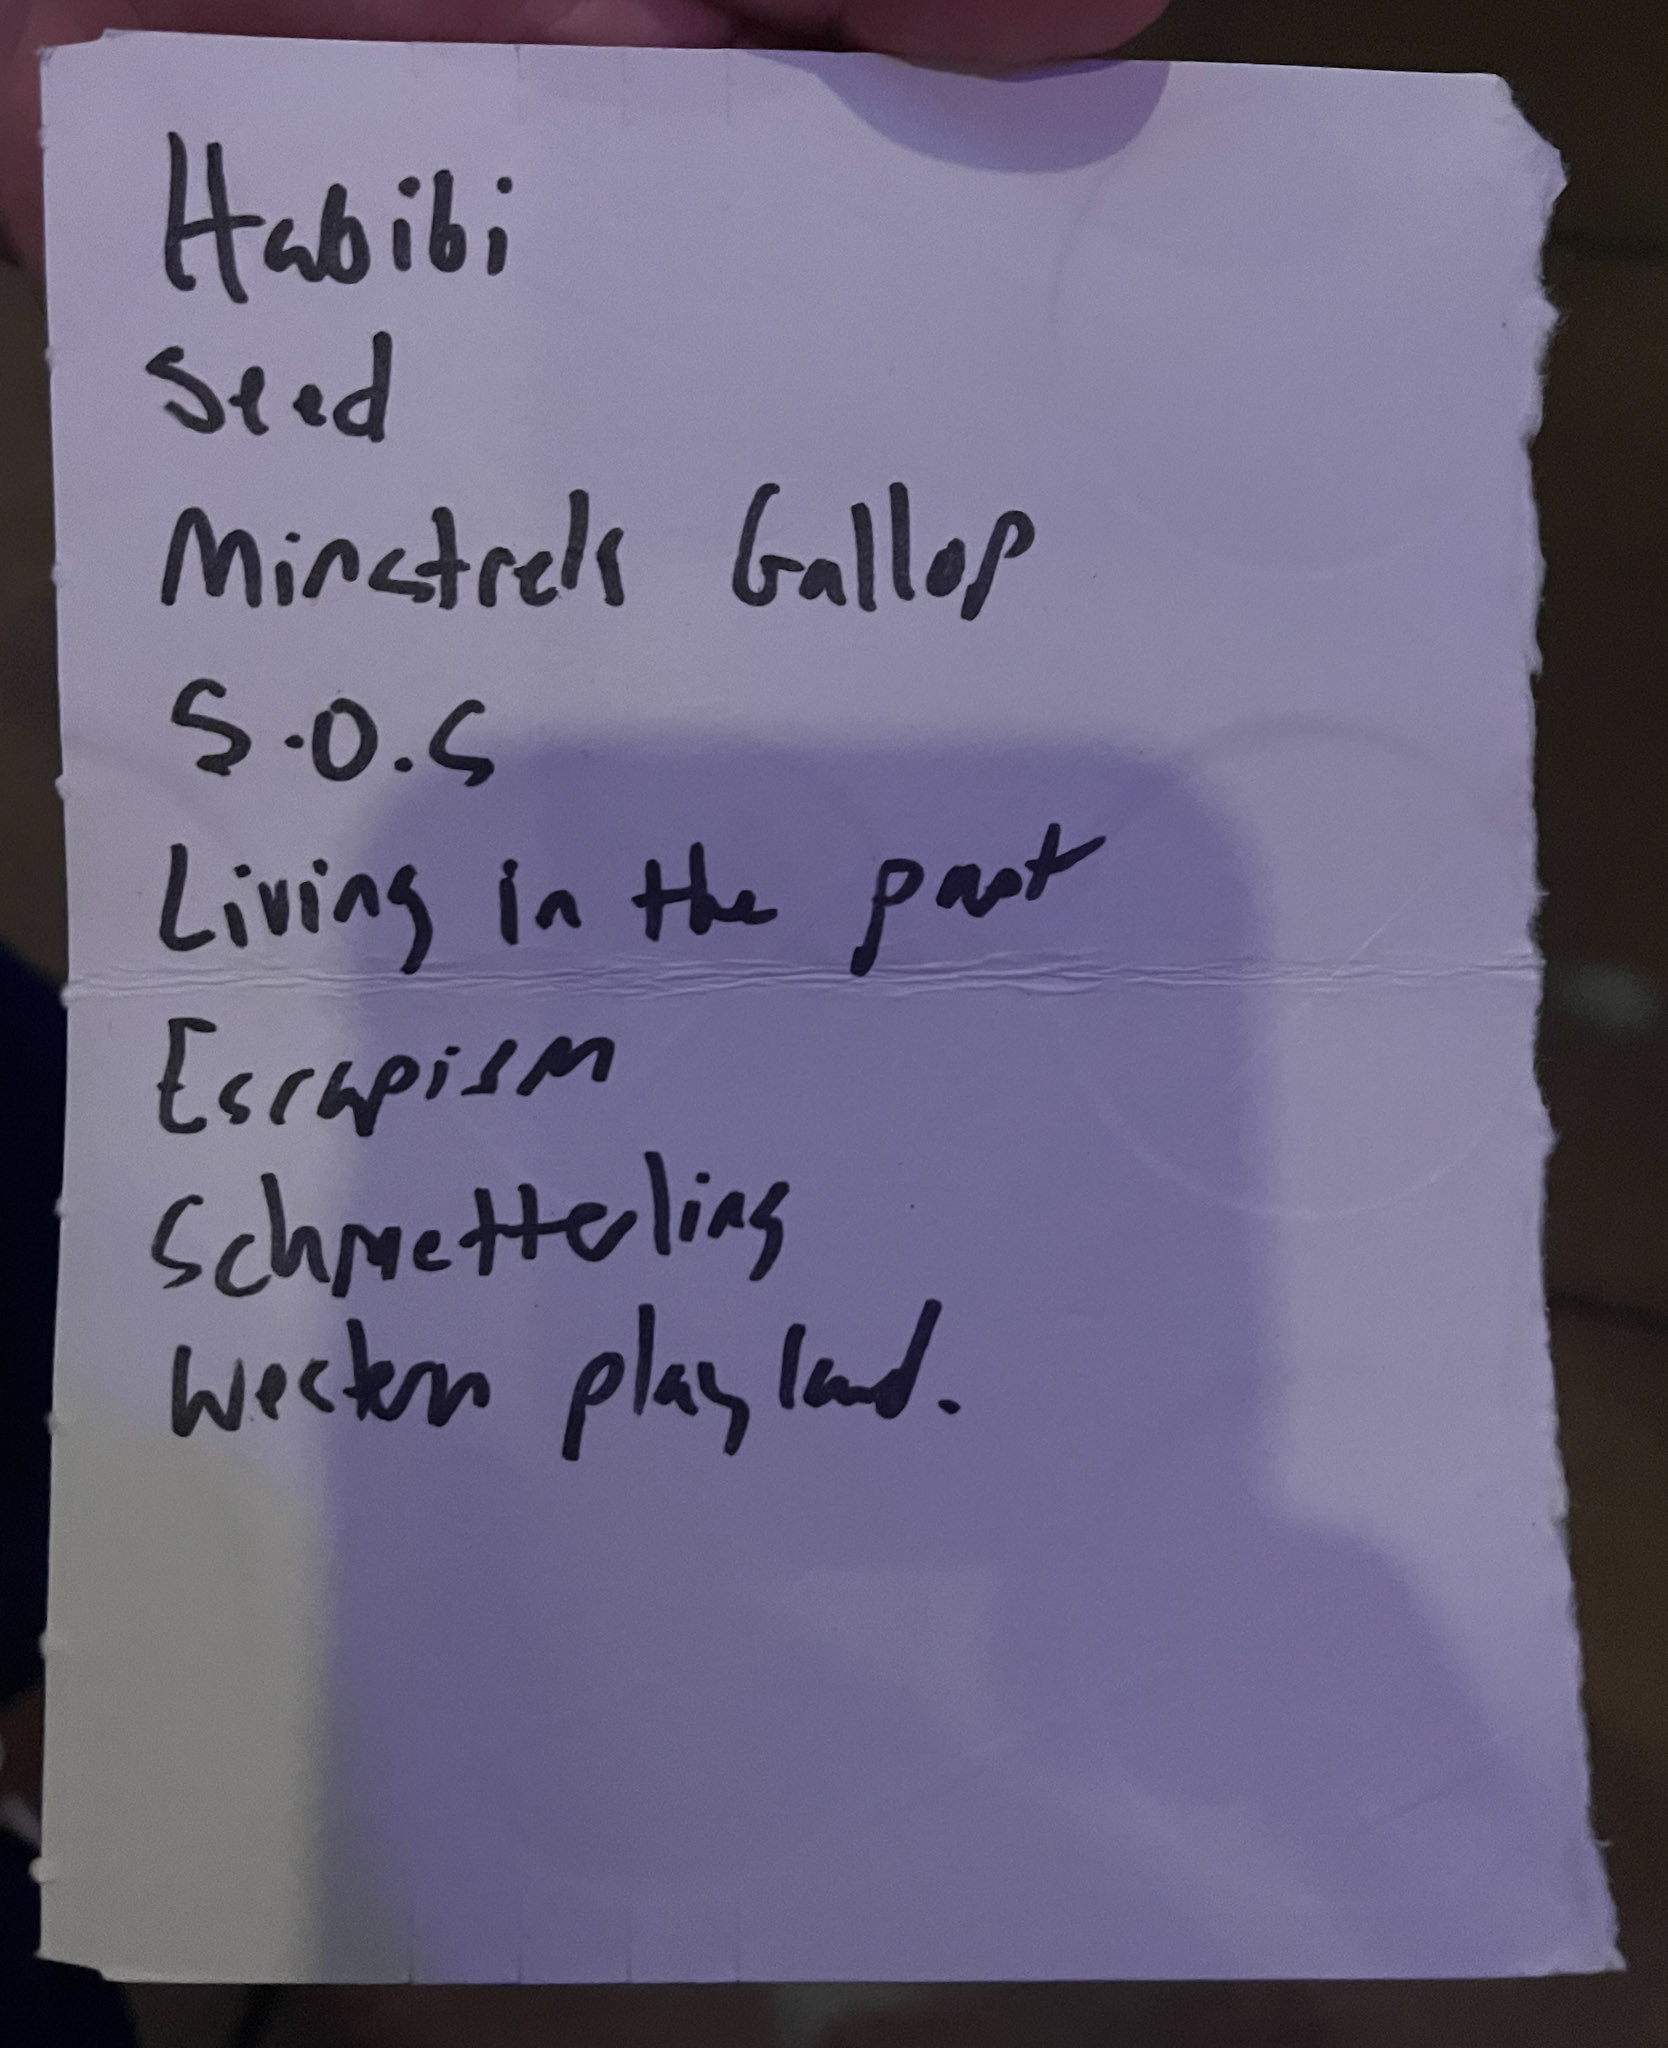 Habibi
Seed
Minstrels Gallop
S.O.S
Living in the past
Escapism
Schmetterling
Western playland.